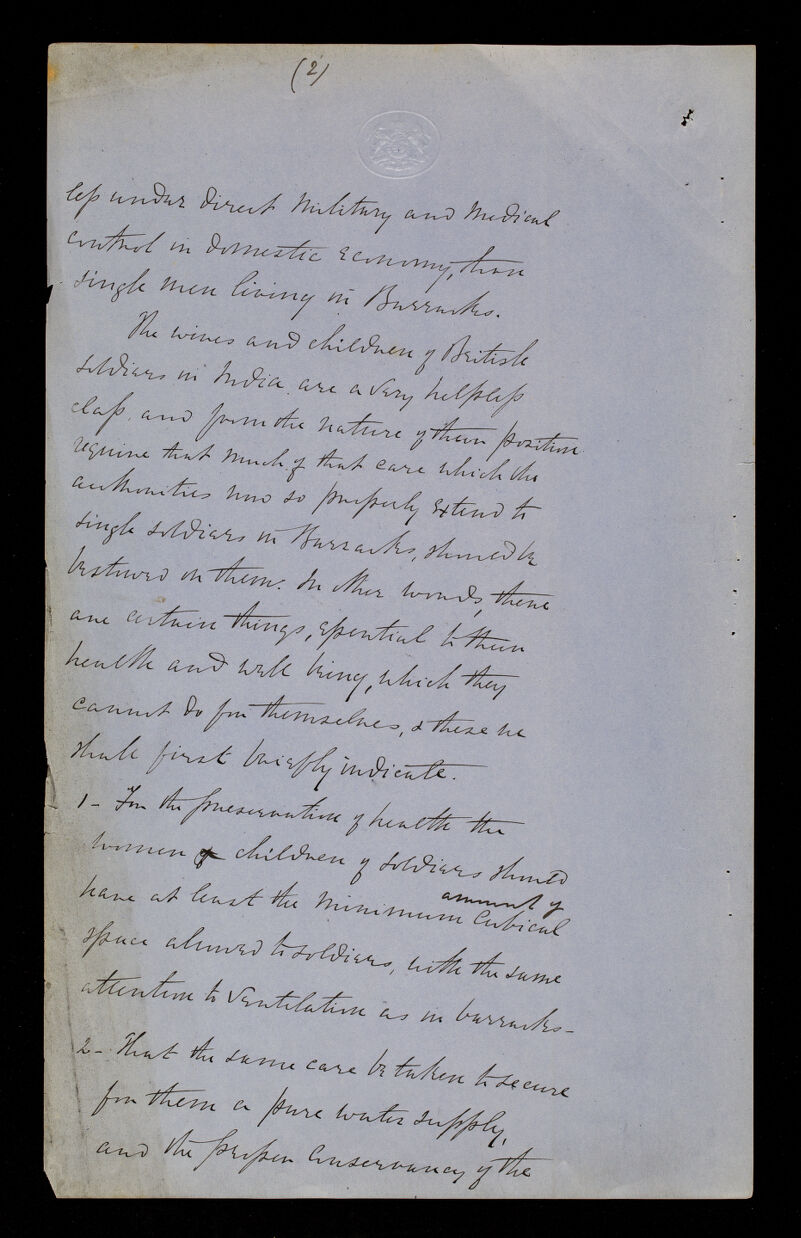 (2)
less under direct Military and Medical
control in domestic economy, than
single men living in Barracks.
The wives and children of British
soldiers in India are a very helpless
class. and from the nature of their position
require that much of that care which the
authorities now so properly extend to
single soldiers in Barracks, should be
bestowed on them. In other words, there
are certain things, essential to their
health and well being, which they
cannot do for themselves, & these we
shall first briefly indicate.
1- For the preservation of health the
women & children of soldiers should
have at least the minimum amount of Cubical
space allowed to soldiers, with the same
attention to ventilation as in barracks-
2- That the same care be taken to secure
for them a pure water supply,
and the proper Conservancy of the